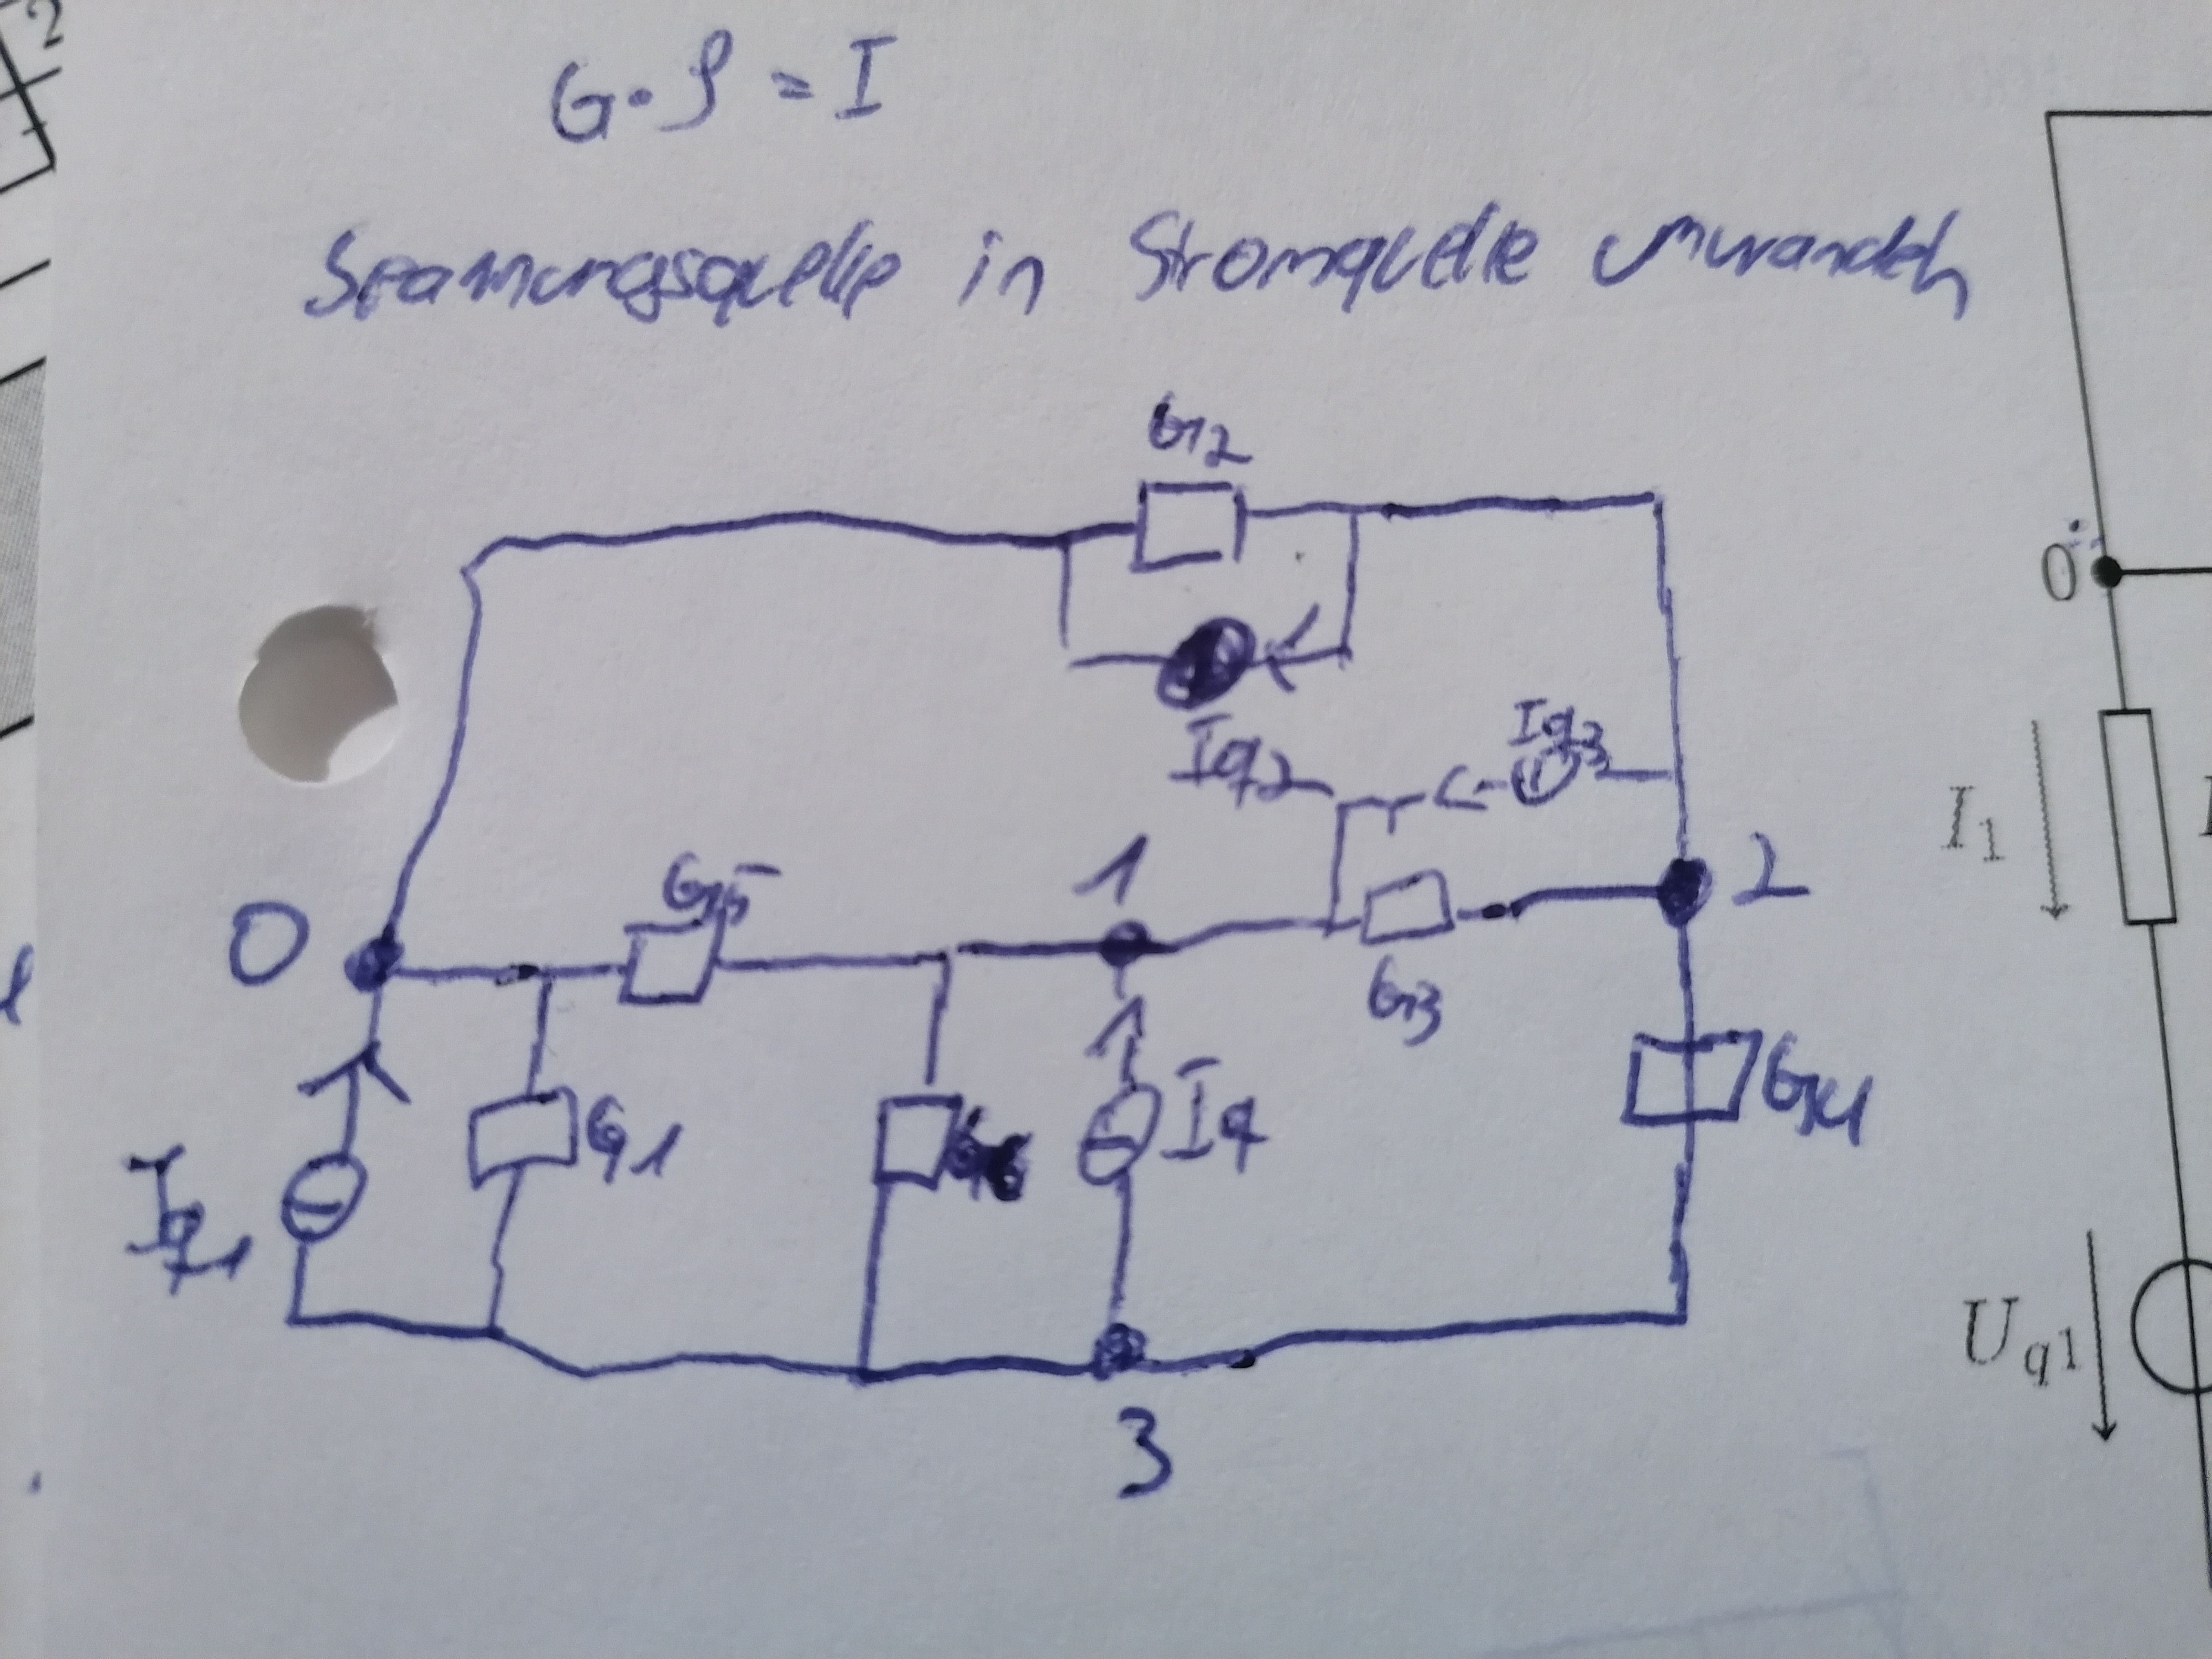 2
G · φ = I
Spannungsquelle in Stromquelle umwandeln
G2
Iq2
Iq3
0
G5
1
2
G3
Iq1
G1
G6
Iq
G4
3
0
I1
Uq1